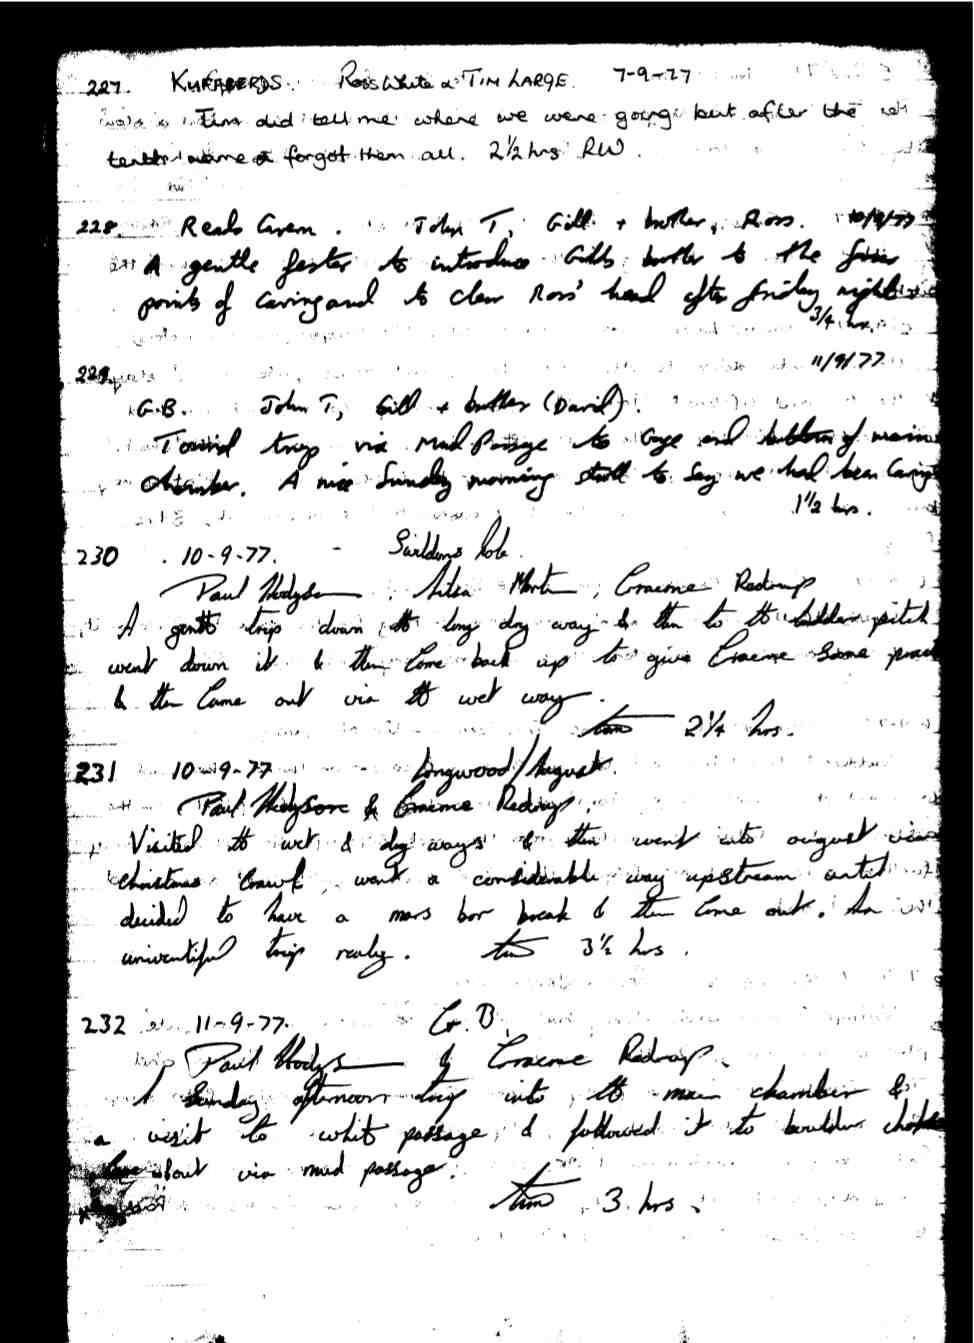 227. Ross White & TIM LARGE. 7-9-77
Tim did tell me where we were going but after the
tenth name I forgot them all. 2½ hrs RW.
228. Reads Cavern. John T, Gill + brother, Ross. 10/9/77
A gentle fester to introduce Gills brother to the finer
points of caving and to clear Ross' head after friday night
3/4 hr.
229. 11/9/77
G.B. John T, Gill + brother (David).
Tourist trip via Mud Passage to Gorge and bottom of main
chamber. A nice Sunday morning stroll to say we had been caving
1½ hrs.
230 10-9-77. - Swildons hole.
Paul Hodgson, Martin, Graeme Redrup
A gentle trip down the long dry way & then to the ladder pitch
went down it & then come back up to give Graeme some
& then came out via the wet way.
time 2¼ hrs.
231 10-9-77 Longwood/August.
Paul Hodgson & Graeme Redrup.
Visited the wet & dry ways & then went into august via
christmas crawl, went a considerable way upstream until
decided to have a mars bar break & then come out. An
uniwentiful trip realy. time 3½ hrs.
232 11-9-77. G.B.
Paul Hodgson & Graeme Redrup.
A Sunday afternoon trip into the main chamber &
a visit to white passage, & followed it to boulder choke
out via mud passage.
time 3 hrs.